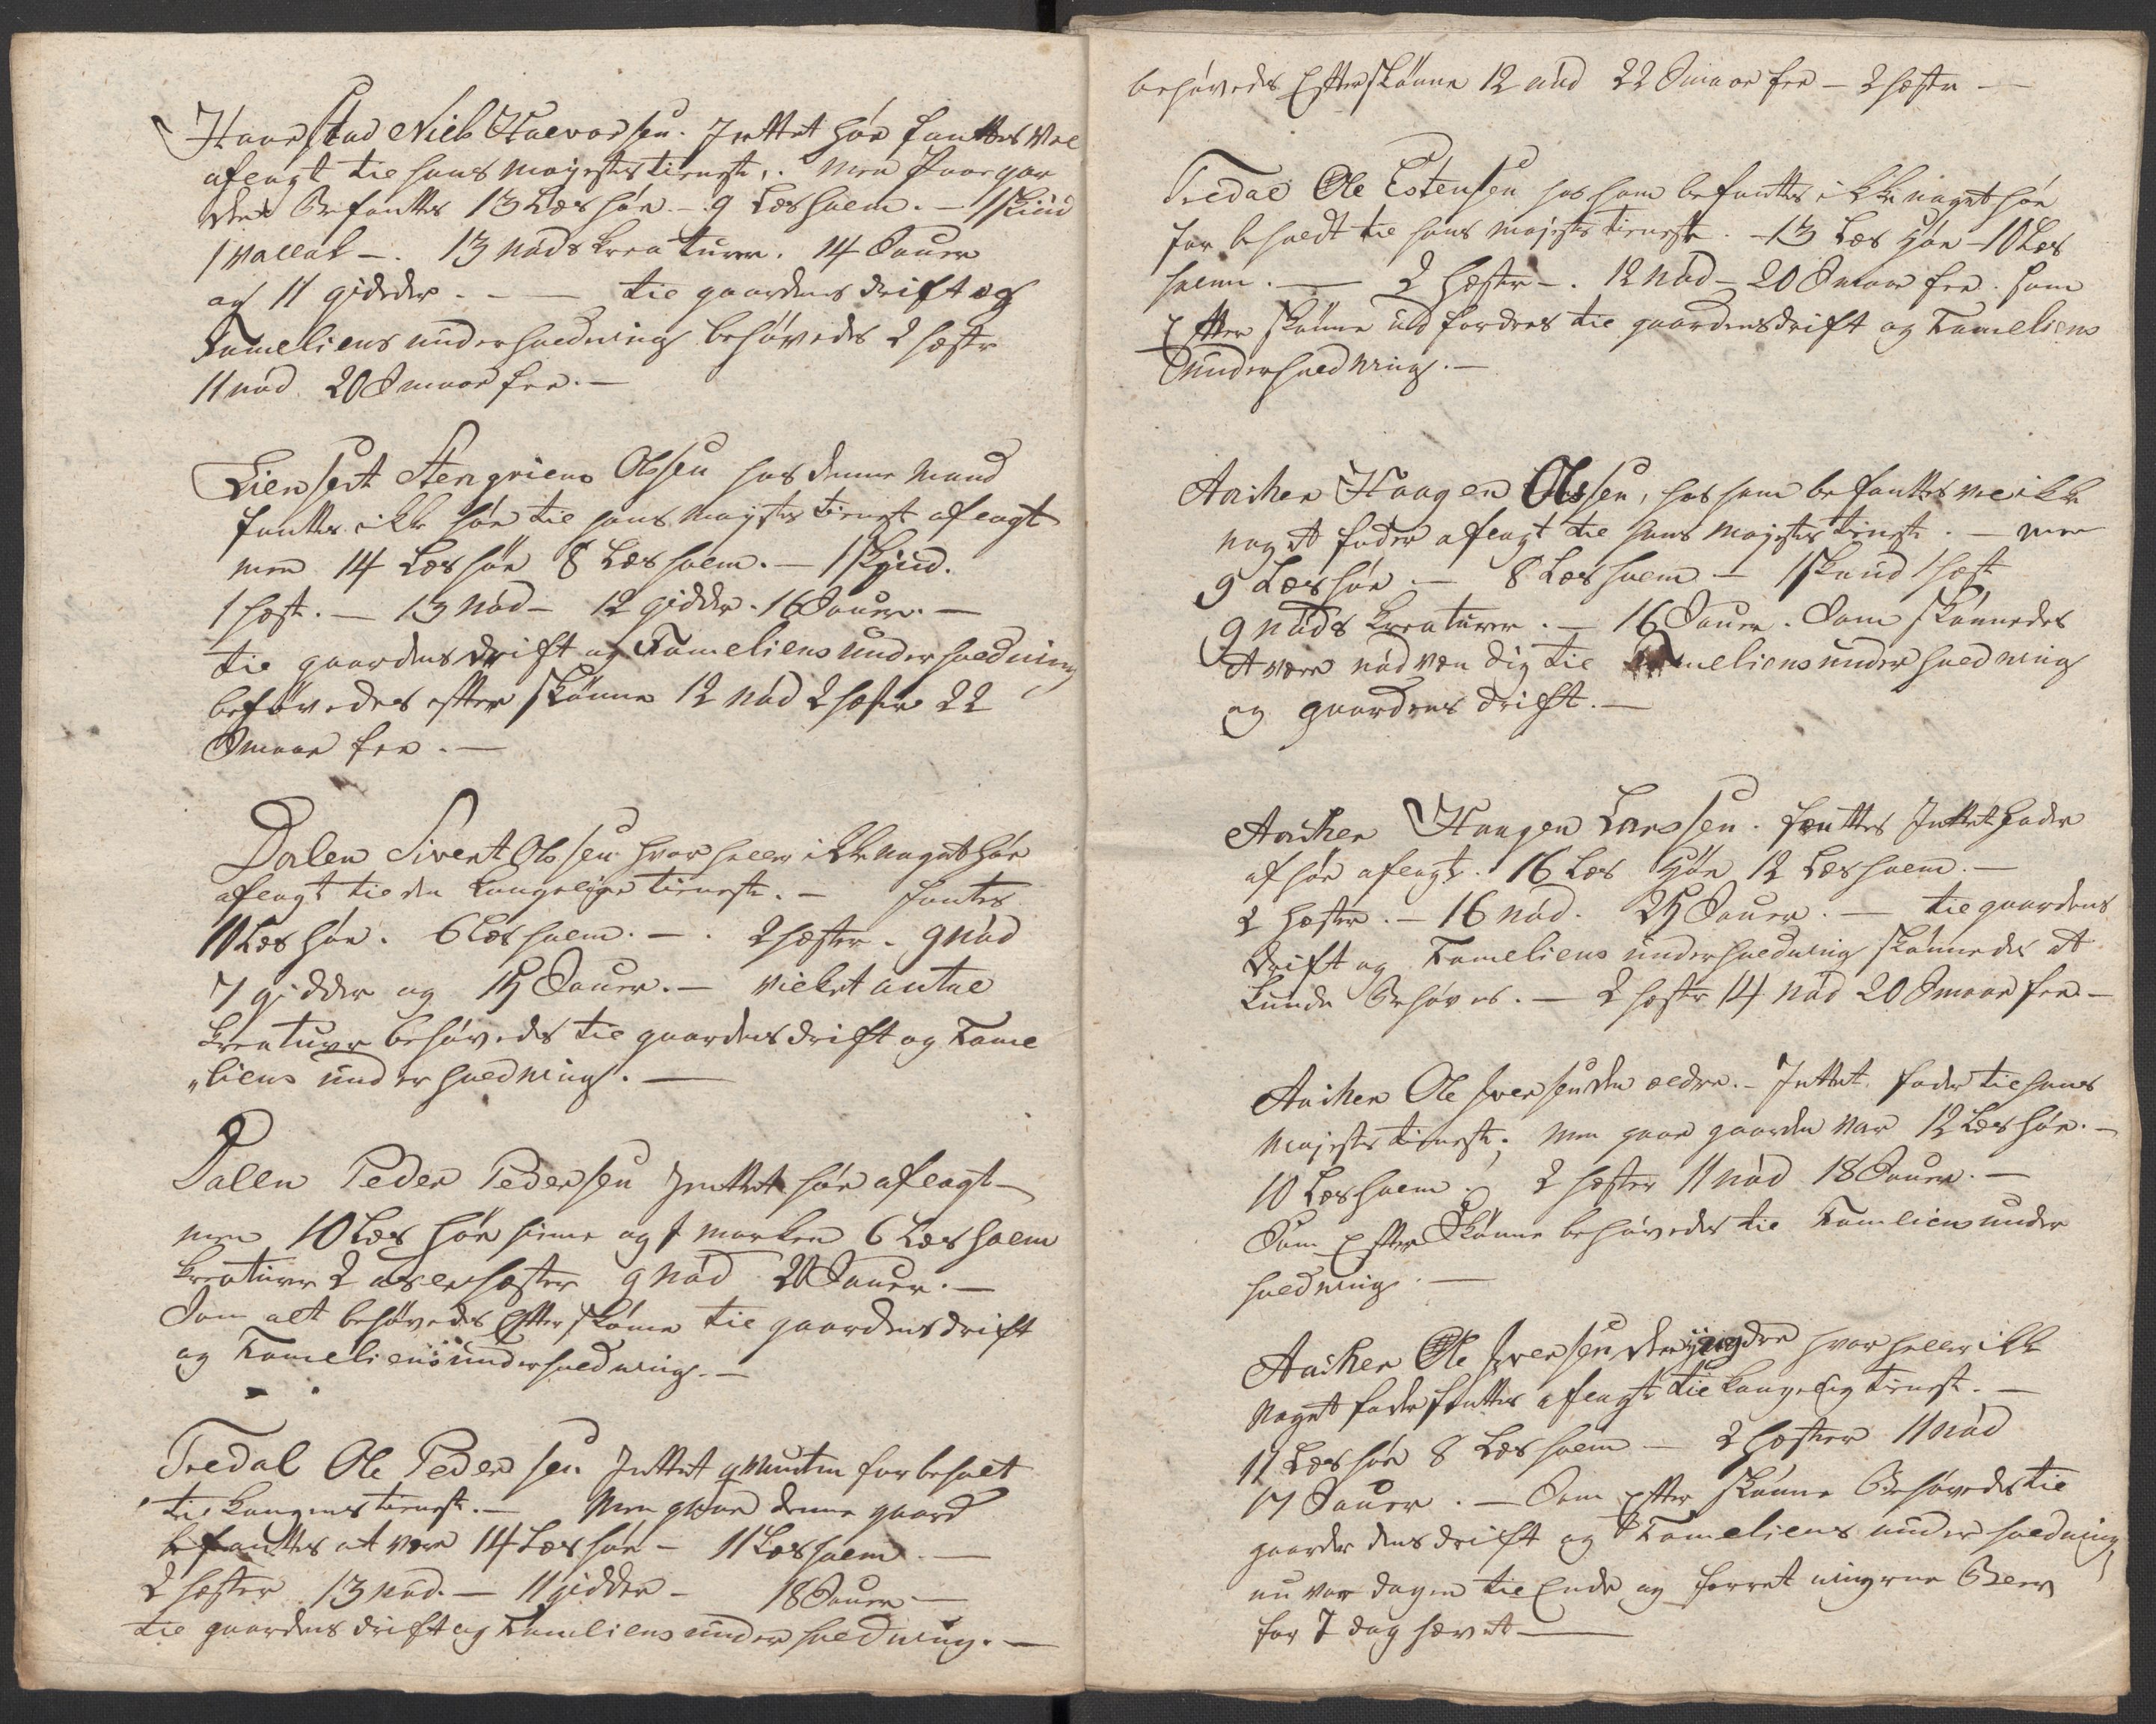 Haarstad Niels Halvorsen. Inttet höe fanttes vel
aflagt til hans majestets tieneste, men Paa gaar
den Befanttes 13 Læs höe - 9 Læs halm. - 1 skiud
1 vallak -. 13 nöds kreaturer. 14 Sauer
og 11 gjeder. - til gaardens drift og
Fameliens underholdning behövedes 2 hæste
11 nöd 20 Smaae fee. -
Lien Stengriens Olsen hos denne Mand
fanttes ikke höe til hans majestets tieneste aflagt
men 14 Læs höe 8 Læs halm. - 1 Skjud.
1 hæst. - 13 nöd - 12 gidder. 16 Sauer. -
til gaardens drift og Fameliens underholdning
behövedes efter skönne 12 nöd 2 hæste 22
Smaae fee. -
Dalen Sivert Olsen hvor heller ikke noget höe
aflagt til den kongelige tieneste. - fantes
11 Læs höe. 6 Læs halm. - . 2 hæster. 9 nöd
7 gidder og 15 Sauer. - vilket antal
kreatuer behövedes til gaardens drift og Fame
"liens underholdning. -
Dalen Peder Pedersen Inttet höe aflagt -
men 10 Læs höe hieme og i marken 6 Læs halm
kreaturer 2 hæster 9 nöd 20 Sauer. -
Som alt behövedes Efter skönne til gaardens drift
og Fameliens underholdning. -
Tredal Ole Pedersen Inttet forbeholt
til kongens tieneste. - Men paa denne gaard
befanttes at være 14 Læs höe - 11 Læs halm. -
2 hæster 13 nöd. - 11 gidder - 18 Sauer -
til gaardens drift og Fameliens underholdning. -
behövedes Efter skönne 12 nöd 22 Smaae fee - 2 hæste -
Tredal Ole Estensen hos ham befanttes ikke noget höe
for beholdt til hans majestets tieneste. - 13 Læs höe - 10 Læs
halm. - 2 hæste -. 12 Nöd - 20 Smaae fee. som
Efter skönne udfordres til gaardens drift og Fameliens
Underholdning. -
Aasken Haagen Olssen, hos ham befanttes vel ikke
noget foder aflagt til hans Majestets tieneste. - men
9 Læs höe. - 8 Læs halm - 1 skiud 1 hæst
9 nöds kreaturer. - 16 Sauer. Som skönnedes
at være nödvendig til Fameliens underholdning
og gaardens drift. -
Aasken Haagen Larssen. fanttes Inttet foder
af höe aflagt. 16 Læs höe 12 Læs halm. -
2 hæster. - 16 nöd. 25 Sauer. - til gaardens
drift og Fameliens underholdning skönnedes at
kunde Behöves. - 2 hæste 14 nöd 20 Smaae fee. -
Aasken Ole Iversen den ældre. - Inttet foder til hans
Majestets tieneste; men paa gaarden var 12 Læs höe. -
10 Læs halm. 2 hæster 11 nöd 18 Sauer. -
Som Efter Skönne behövedes til Fameliens under
holdning. -
Aasken Ole Iversen den yngdre hvor heller ikke
Noget foder fanttes aflagt til kongelig tieneste. -
11 Læs höe 8 Læs halm - 2 hæster 11 nöd
17 Sauer. - Som Efter skönne Behövedes til
gaardendens drift og Fameliens underholdning
nu var dagen til Ende og forretningerne Blev
for 7 dag hævet -